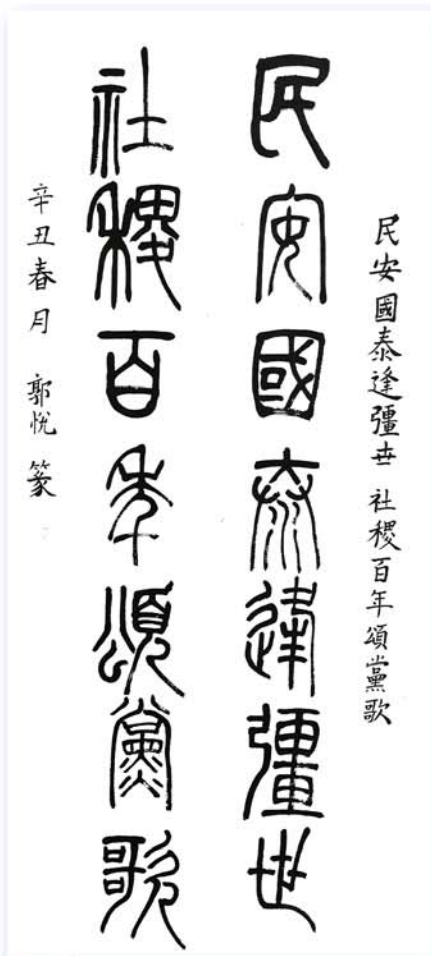 民安國泰逢彊世 社稷百年頌黨歌
民安國泰逢彊世
社稷百年頌黨歌
辛丑春月 郭悦 篆